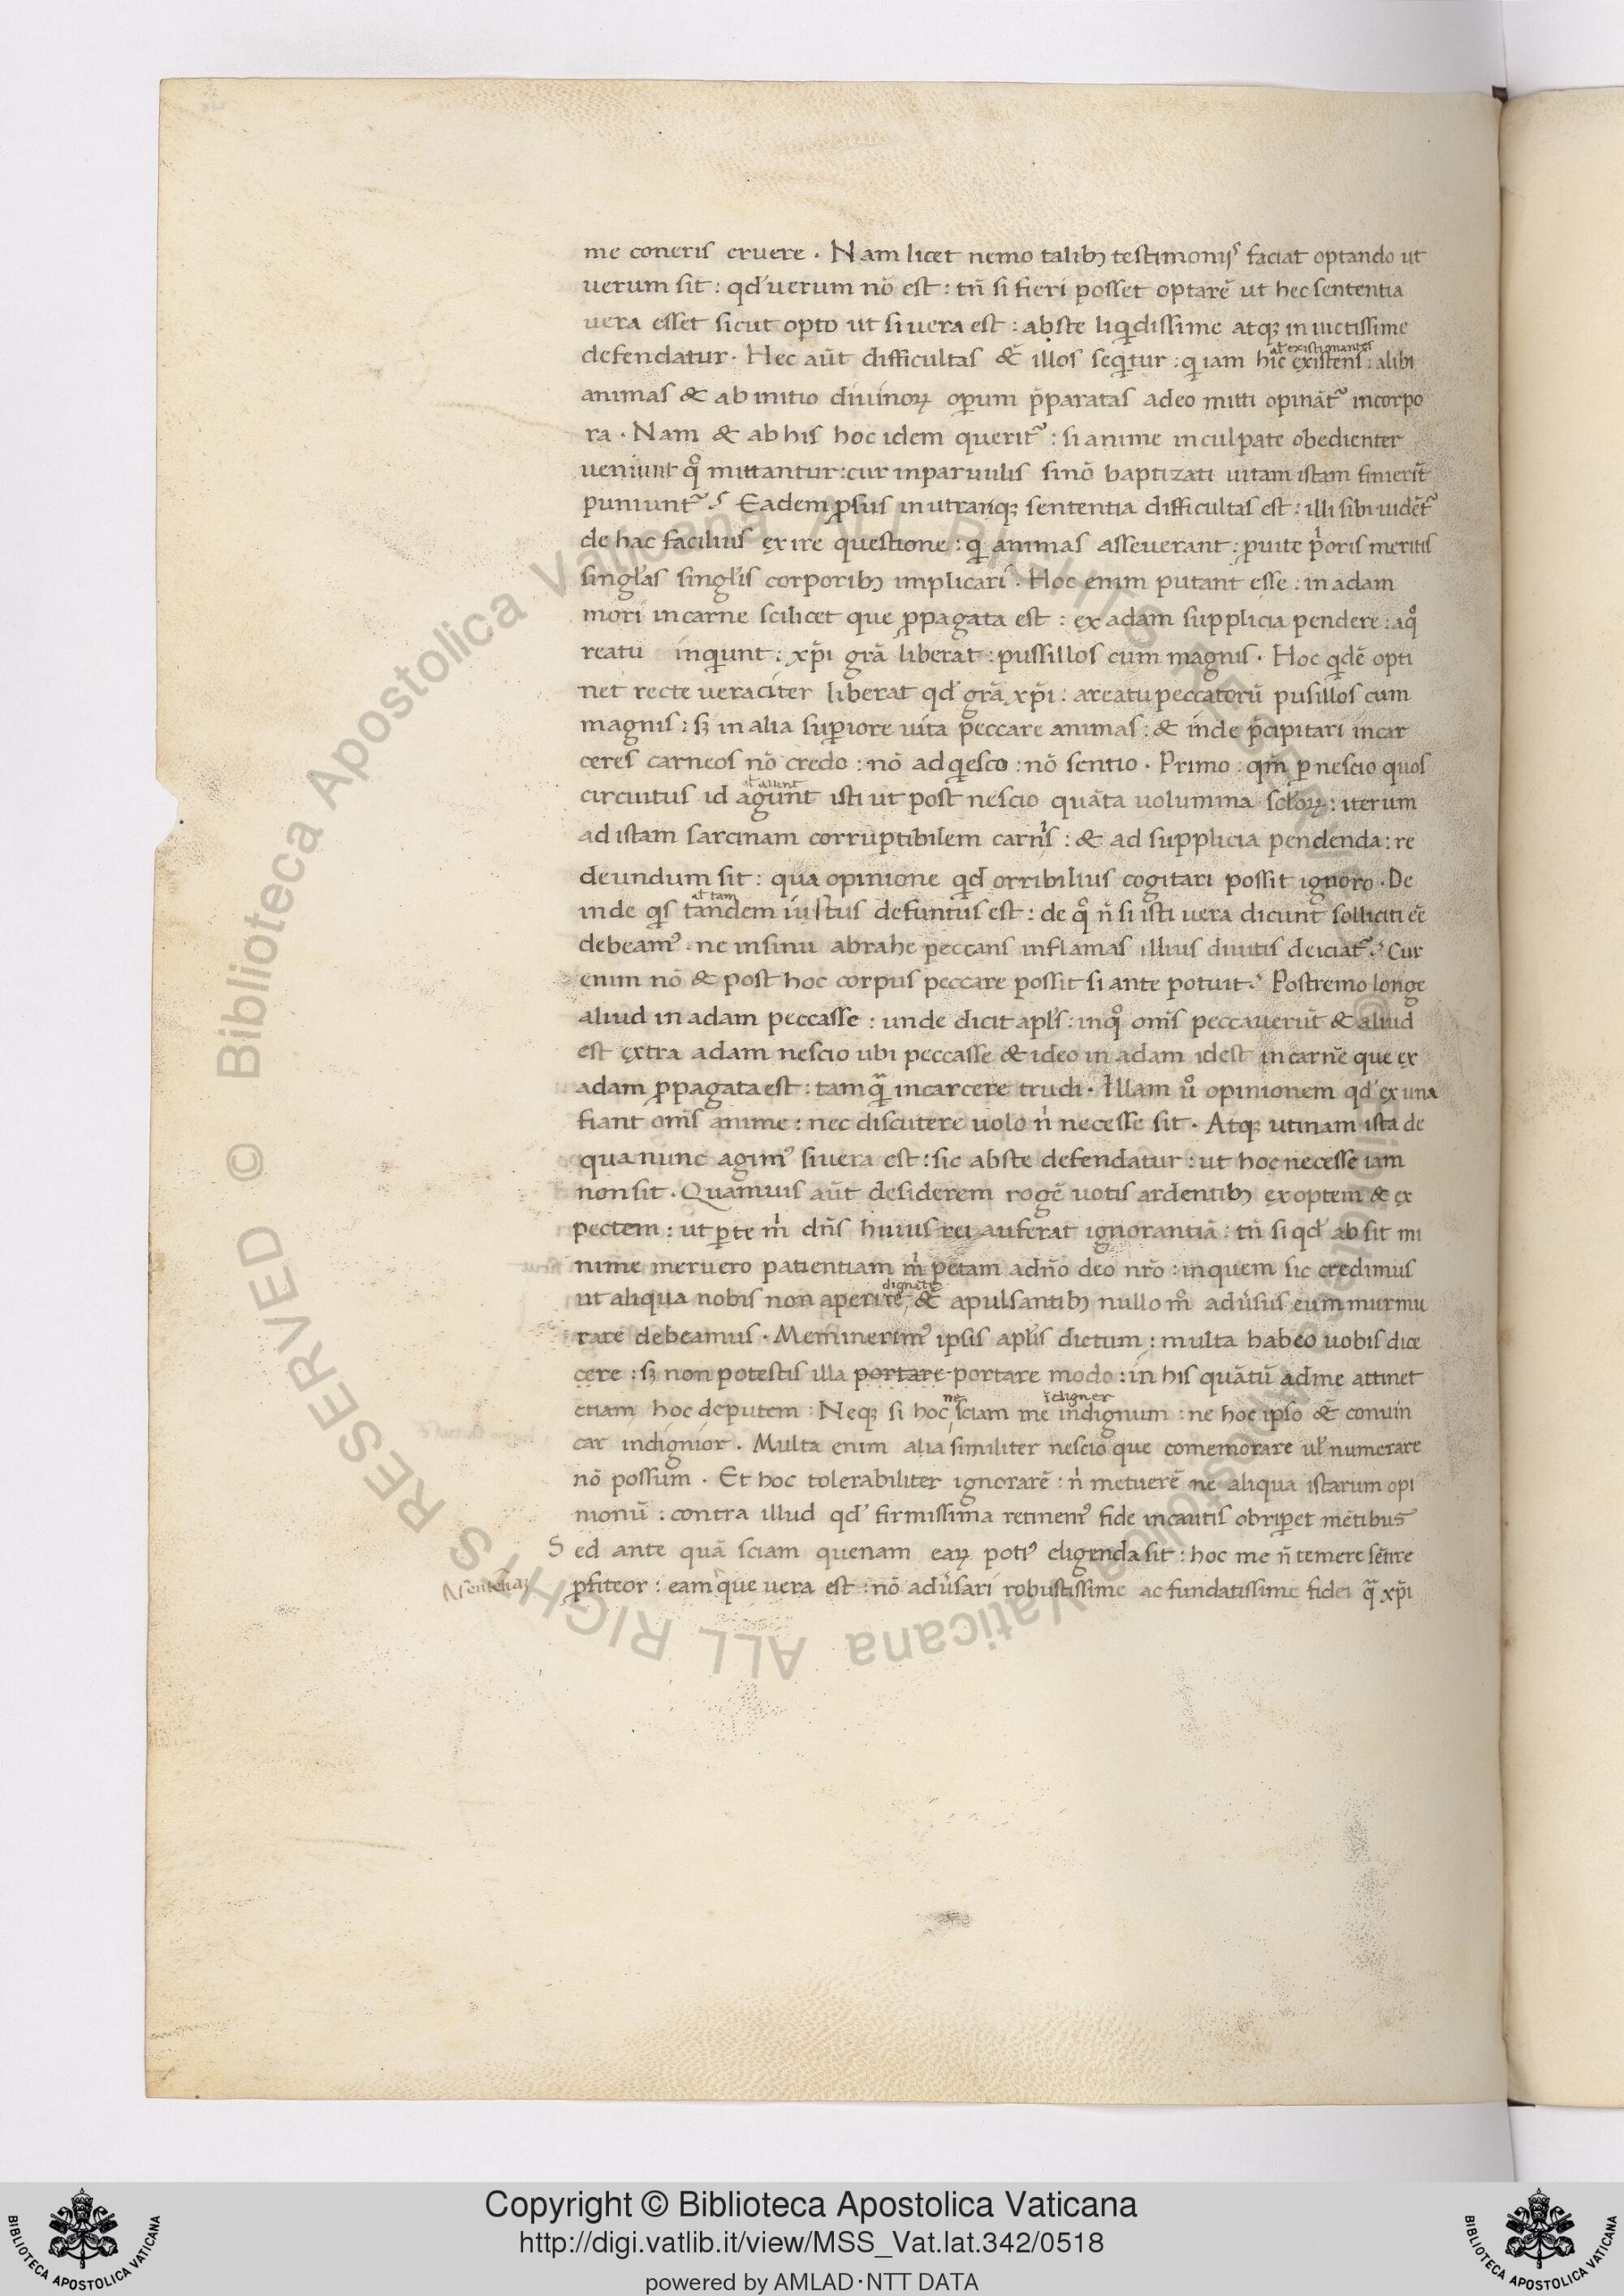 me coneris eruere . Nam licet nemo talibꝫ testimonijs faciat optando ut
uerum sit : qđ uerum nō est : tn̄ si fieri posset optarē ut hec sententia
uera esset sicut opto ut si uera est : abste liqͥdissime atqꝫ in uictissime
defendatur . Hec aūt difficultas & illos seqͥtur : qͥ iam hic existens : alibi
ał existimantes
animas & ab initio diuinoꝝ oꝑum p̄paratas adeo mitti opināt᷑ incorpo
ra . Nam & ab his hoc idem querit᷑ : si anime inculpate obedienter
ueniunt qͦ mittantur : cur inparuulis sinō baptizati uitam istam finierīt
puniunt᷑ ? Eadem ꝓsus in utranqꝫ sententia difficultas est : illi sibi uidēt᷑
de hac facilius exire questione : qͥ animas asseuerant : ꝓuite pͥoris meritis
singłas singłis corporibꝫ implicari . Hoc enim putant esse : in adam
mori in carne scilicet que ꝓpagata est : ex adam supplicia pendere : aqͦ
reatu inqͥunt : xp̄i grā liberat : pussillos cum magnis . Hoc qͥdē opti
net recte ueraciter liberat qđ grā xp̄i : areatu peccatorū pusillos cum
magnis : sꝫ in alia suꝑiore uita peccare animas : & inde p̄cipitari incar
ceres carneos nō credo : nō adqͥesco : nō sentio . Primo : qm̄ ꝑ nescio quos
ał aiunt
circuitus id agunt isti ut post nescio quāta uolumina scłoꝝ : iterum
ad istam sarcinam corruptibilem carnis : & ad supplicia pendenda : re
deundum sit : qua opinione qͥd orribilius cogitari possit ignoro . De
ał tam
inde qͥs tandem iustus defuntus est : de qͦ n̄ si isti uera dicunt solliciti eē
debeamꝰ . ne insinu abrahe peccans inflamas illius diuitis deiciat᷑ ? Cur
enim nō & post hoc corpus peccare possit si ante potuit ? Postremo longe
aliud in adam peccasse : unde dicit apłs : inqͦ oms̄ peccauerūt & aliud
est extra adam nescio ubi peccasse & ideo in adam idest in carne que ex
adam ꝓpagata est : tamqͣ incarcere trudi . Illam uͦ opinionem qđ ex una
fiant oms̄ anime : nec discutere uolo nͥ necesse sit . Atqꝫ utinam ista de
qua nunc agimꝰ si uera est : sic abste defendatur : ut hoc necesse iam
non sit . Quamuis aūt desiderem rogē uotis ardentibꝫ exoptem & ex
pectem : ut ꝑ te mͥ dn̄s huius rei auferat ignorantiā : tn̄ si qđ absit mi
nime meruero patientiam mͥ petam adn̄o deo nr̄o : inquem sic credimus
dignāte
ut aliqua nobis non aperire, & apulsantibꝫ nullo mͦ adūsus eum murmu
rare debeamus . Meminerimꝰ ipsis apłis dictum : multa habeo uobis dice
cere : sꝫ non potestis illa portare portare modo : in his quātū ad me attinet
ne idigner
etiam hoc deputem : Neqꝫ si hoc sciam me indignum : ne hoc ipso & conuin
car indignior . Multa enim alia similiter nescio que comemorare uł numerare
nō possum . Et hoc tolerabiliter ignorarē : nͥ metuerē ne aliqua istarum opi
nionū : contra illud qđ firmissima retinemꝰ fide incautis obriꝑet mētibus
Sed ante quā sciam quenam eaꝝ potiꝰ eligenda sit : hoc me n̄ temere sētire
sentētiaꝫ
ꝓfiteor : eam que uera est : nō adūsari robustissime ac fundatissime fidei qͣ xp̄i
Copyright © Biblioteca Apostolica Vaticana
http://digi.vatlib.it/view/MSS_Vat.lat.342/0518
powered by AMLAD·NTT DATA
BIBLIOTECA APOSTOLICA VATICANA
BIBLIOTECA APOSTOLICA VATICANA
© Biblioteca Apostolica Vaticana ALL RIGHTS RESERVED
© Biblioteca Apostolica Vaticana ALL RIGHTS RESERVED